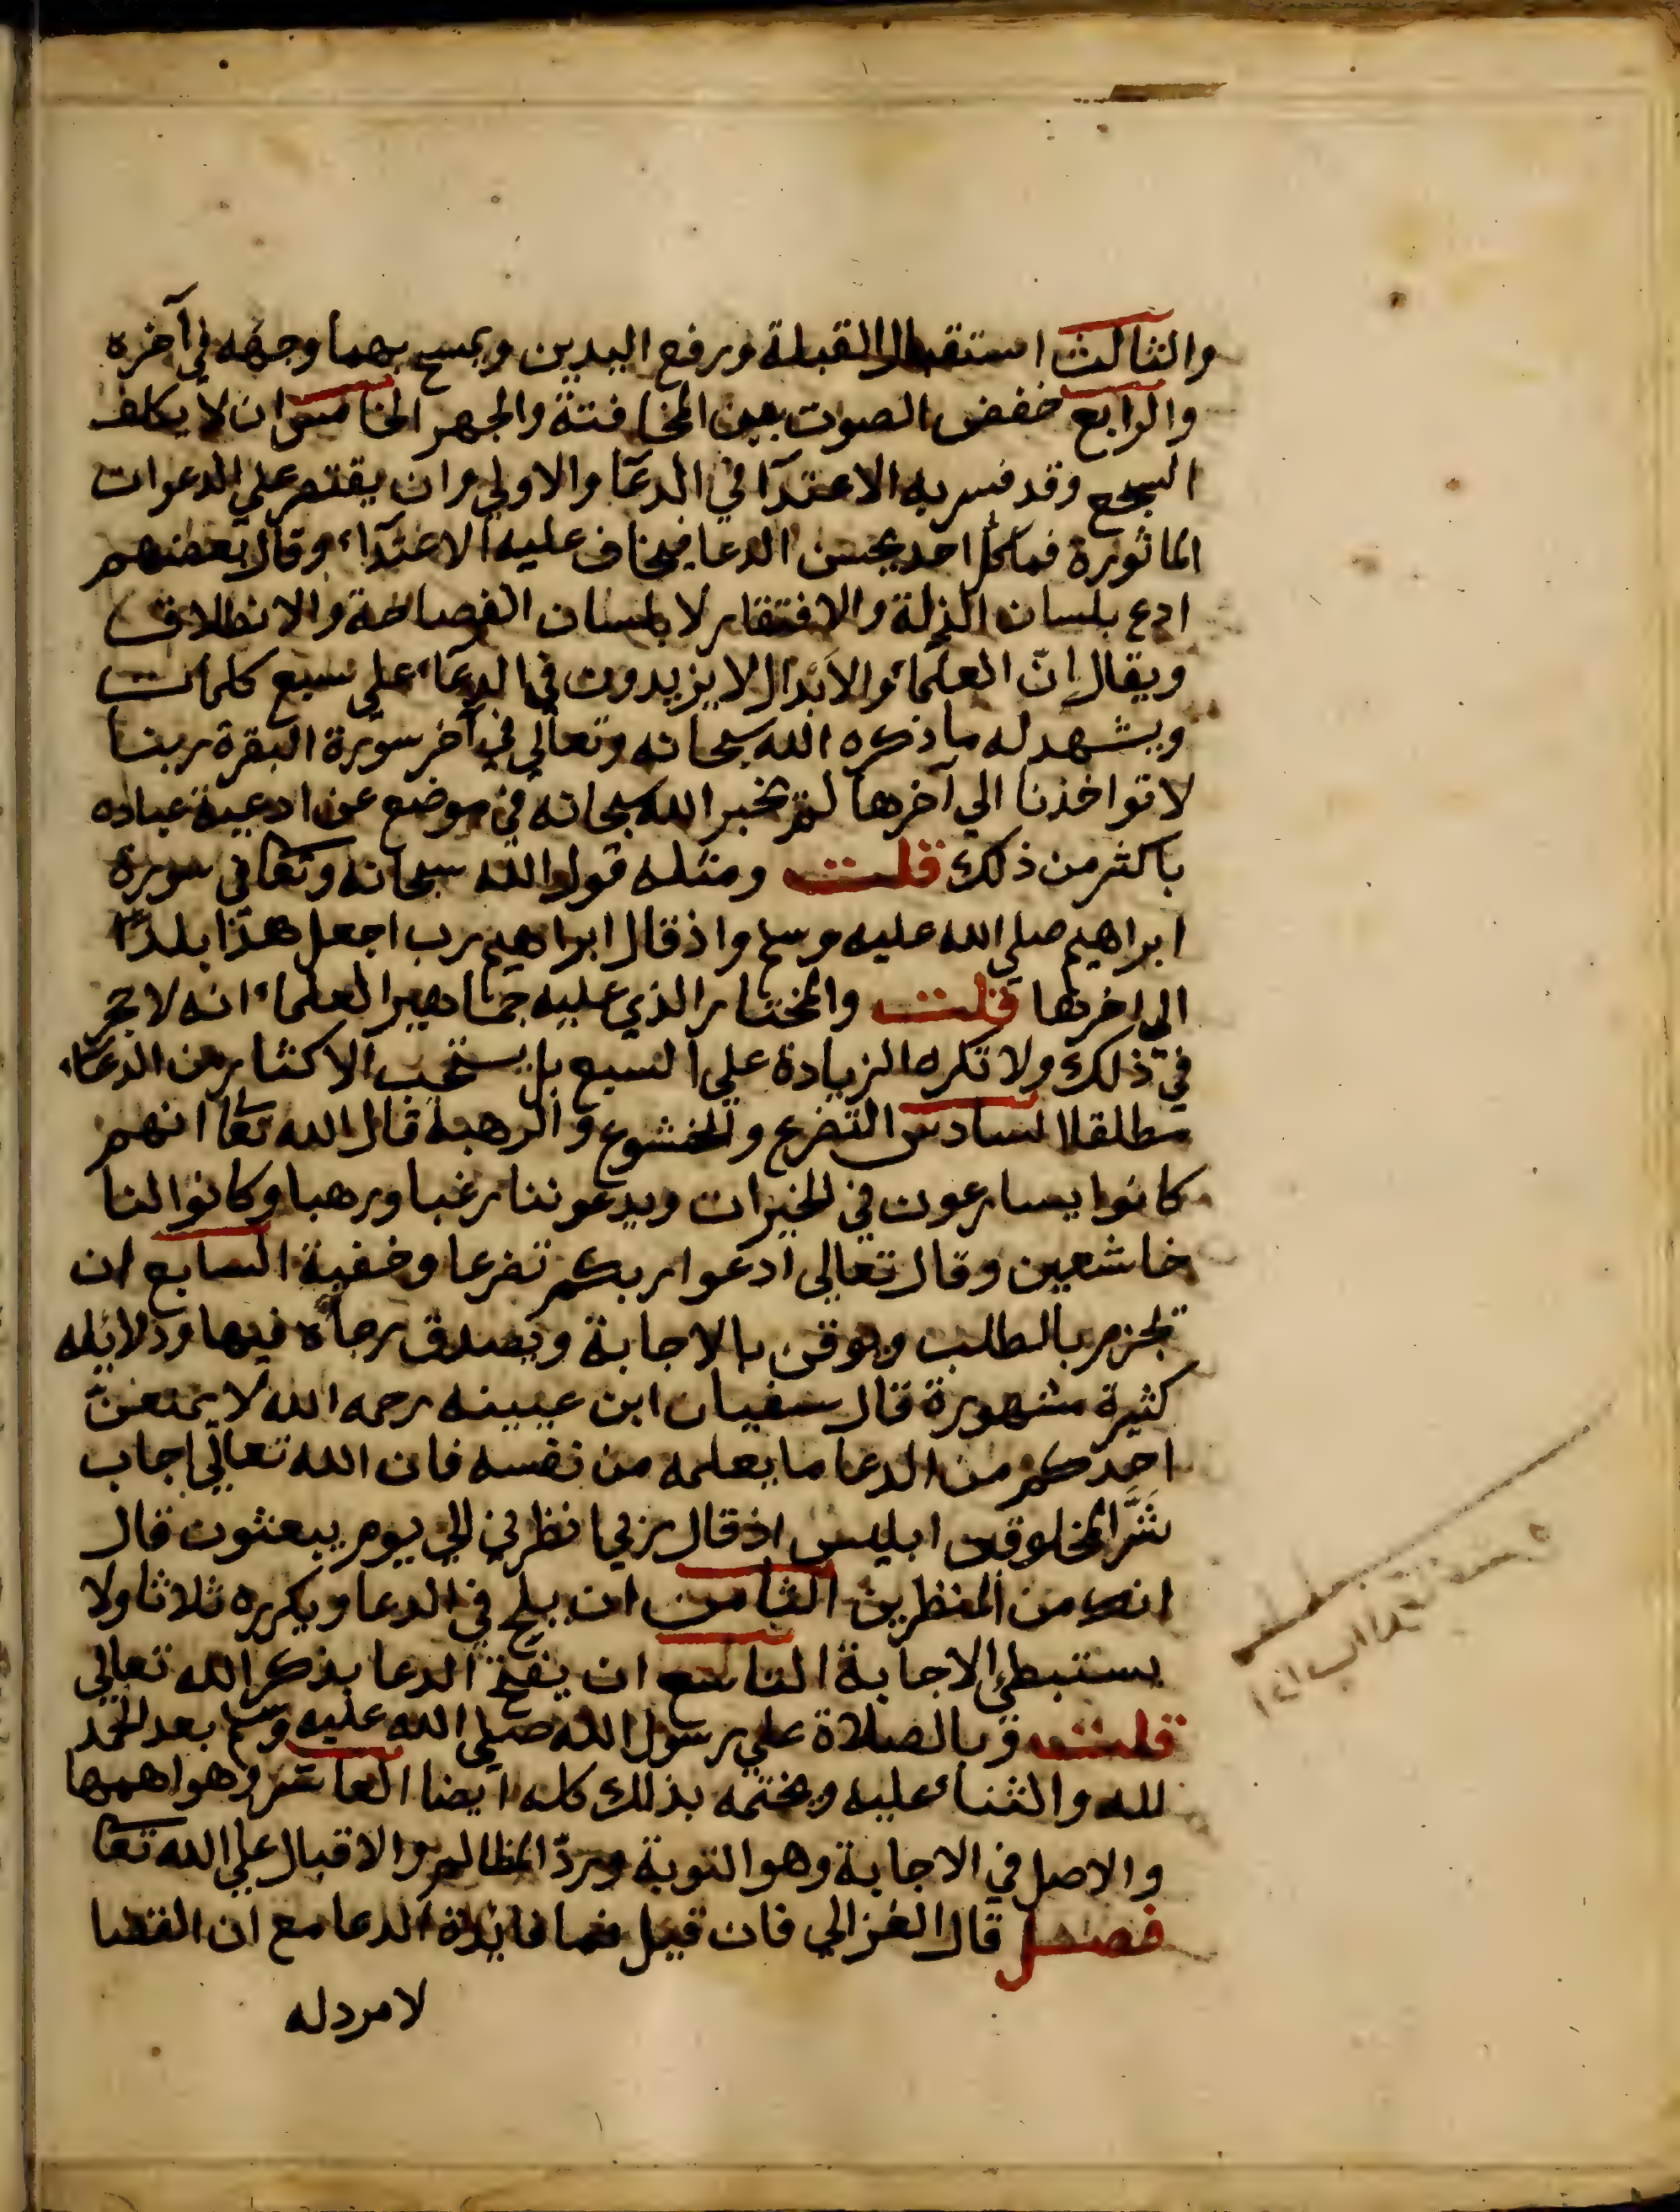 والثالث استقبال القبلة ورفع اليدين ويمسح بهما وجهه في آخره
والرابع خفض الصوت بين المخافتة والجهر الخامس ان لا يكلف
السجع وقد فسر به الاعتدآ في الدعآ والاولي ان يقتصر علي الدعوات
الماثورة فما كل احد يحسن الدعا فيخاف عليه الاعتدآء وقال بعضهم
ادع بلسان الذلة والافتقار لا بلسان الفصاحة والانطلاق
ويقال انّ العلمآء والابدال لا يزيدون في الدعآء علي سبع كلمات
ويشهد له ما ذكره الله سبحانه وتعالي في آخر سورة البقرة ربنا
لا تواخذنا الي آخرها لم يخبر الله سبحانه في موضع عن ادعية عباده
باكثر من ذلك قلت ومثله قول الله سبحانه وتعا في سورة
ابراهيم صلي الله عليه وسلم واذ قال ابراهيم رب اجعل هذا بلدًا
الي اخرها قلت والمختار الذي عليه جماهير العلماء انه لا حجر
في ذلك ولا تكره الزيادة علي السبع بل يستحب الاكثار من الدعآء
مطلقا السادس التضرع والخشوع والرهبة قال الله تعا انهم
كانوا يسارعون في الخيرات ويدعوننا رغبا ورهبا وكانوا لنا
خاشعين وقال تعالي ادعوا ربكم تضرعا وخفية السابع ان
يجزم بالطلب ويوقن بالاجابة ويصدق رجآه فيها ودلائله
كثيرة مشهورة قال سفيان ابن عيينه رحمه الله لا يمنعنّ
احدكم من الدعا ما يعلمه من نفسه فان الله تعالي اجاب
شرّ المخلوقين ابليس اذ قال رب انظرني الي يوم يبعثون قال
انك من المنظرين الثامن ان يلح في الدعا ويكرره ثلاثا ولا
يستبطئ الاجابة التاسع ان يفتح الدعا بذكر الله تعالي
قلت وبالصلاة علي رسول الله صلي الله عليه وسلم بعد الحمد
لله والثناء عليه ويختمه بذلك كله ايضا العاشر وهو اهمها
والاصل في الاجابة وهو التوبة وردّ المظالم والاقبال علي الله تعا
فصل قال الغزالي فان قيل فما فايدة الدعا مع ان القضا
لا مرد له